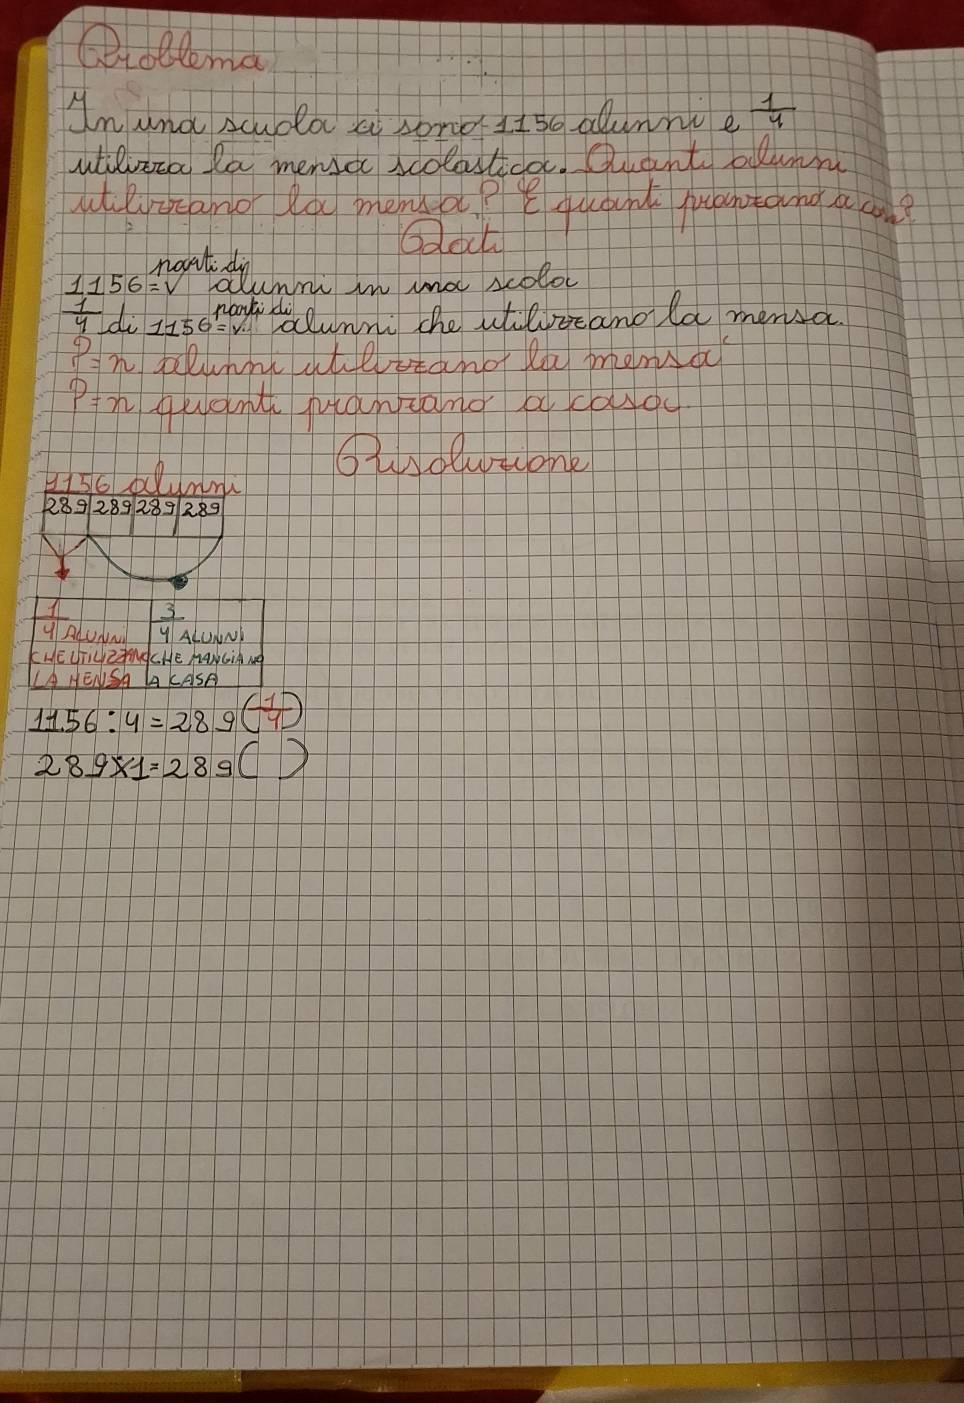 Problema
In una scuola ci sono 1156 alunni e 1/4
utilizza la mensa scolastica. Quanti alunni
utilizzano la mensa? E quanti pranzano a
Dati
parti di
1156 = alunni in una scola
parti di
1/4 di 1156 = alunni che utilizzano la mensa.
? = n alunni utilizzano la mensa
? = n quanti pranzano a casa
Risoluzione
1156 alunni
289 289 289 289
1/4 ALUNNI
CHE UTILIZZANO
LA MENSA
3/4 ALUNNI
CHE MANGIANO
A CASA
1156 : 4 = 289 (1/4)
289 x 1 = 289 ( )